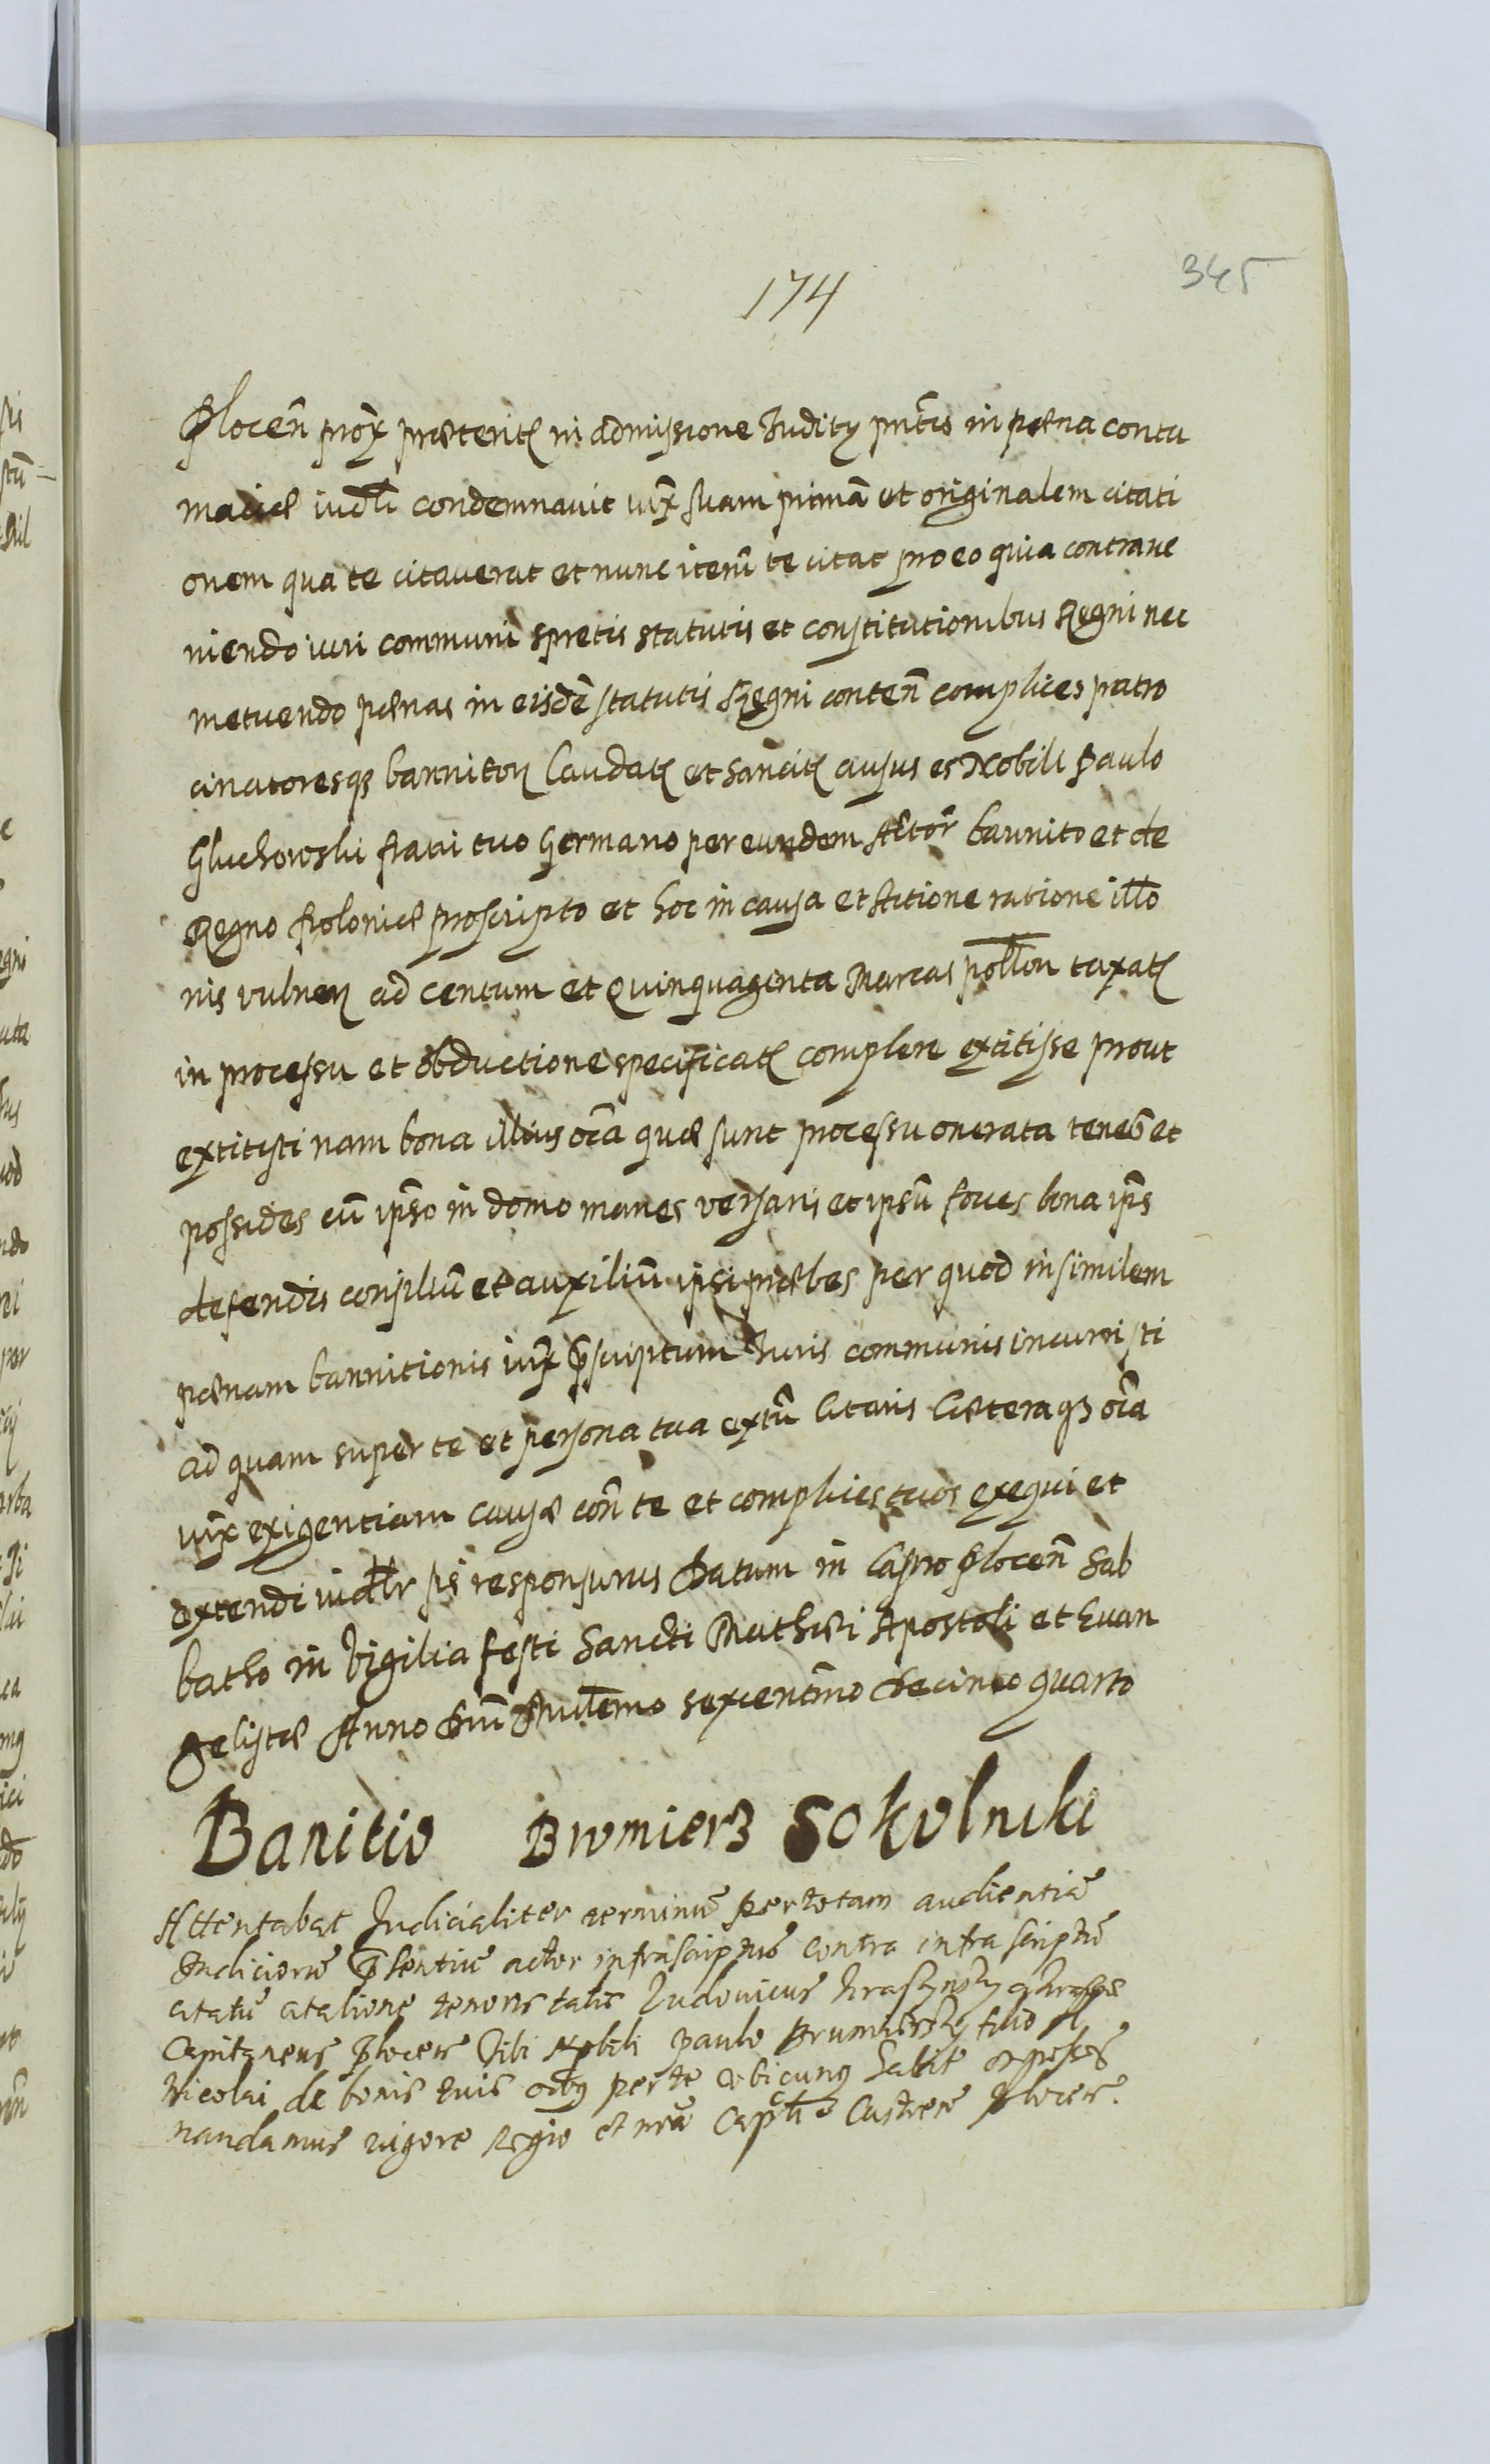 174
345
Plocen̄ prox̄ præterit in admissione Judity pn̄tis in pæna contu
maciæ iud̄li condemnauit iux̄ suam primā et originalem citati
onem qua te citauerat et nunc iterū te citat pro eo quia contraue
niendo iuri communi spretis statutis et constitutionibus Regni nec
metuendo pænas in eisdē statutis Regni conten̄ complices patro
cinatoresq bannitor laudat et sancit ausus es Nobili Paulo
Gluchowski fratri tuo Germano per eundem Actor̄ bannito et de
Regno Poloniæ proscripto et hoc in causa et Actione ratione illo
nis vulner ad centum et Quinquaginta Marcas pol̄lon taxat
in processu et obductione specificat complere extitisse prout
extitisti nam bona illius oīa quæ sunt processu onerata tenes et
possides cū ipso in domo manes versaris et ipsū foues bona ips
defendis consiliū et auxiliū ipsi præbes per quod in similem
pænam bannitionis iux p̄scriptum Juris communis incurristi
ad quam super te et persona tua extū Citaris Cæteraq oīa
iux exigentiam causæ con̄ te et complices tuos exequi et
extendi iudlr̄ sis responsurus Datum in Castro Plocen̄ Sab
batho in Vigilia festi Sancti Mathæi Apostoli et Euan
gelistæ Anno Dn̄i Mill̄emo sexcent̄mo decimo quarto
Banitio Bromierz Sokolnicki
Attentabat Judicialiter terminū per totam audientiā
Judiciorū p̄sentiū actor infrascriptus contra infra scriptū
citatū citatione tenoris talis Ludouicus
Capitaneus Plocen̄ Tibi Nobili Paulo filio
Nicolai de bonis tuis oibq per te vbicunq habit
mandamus vigore Regio et nrā Capt̄li Castren̄ Plocen̄.